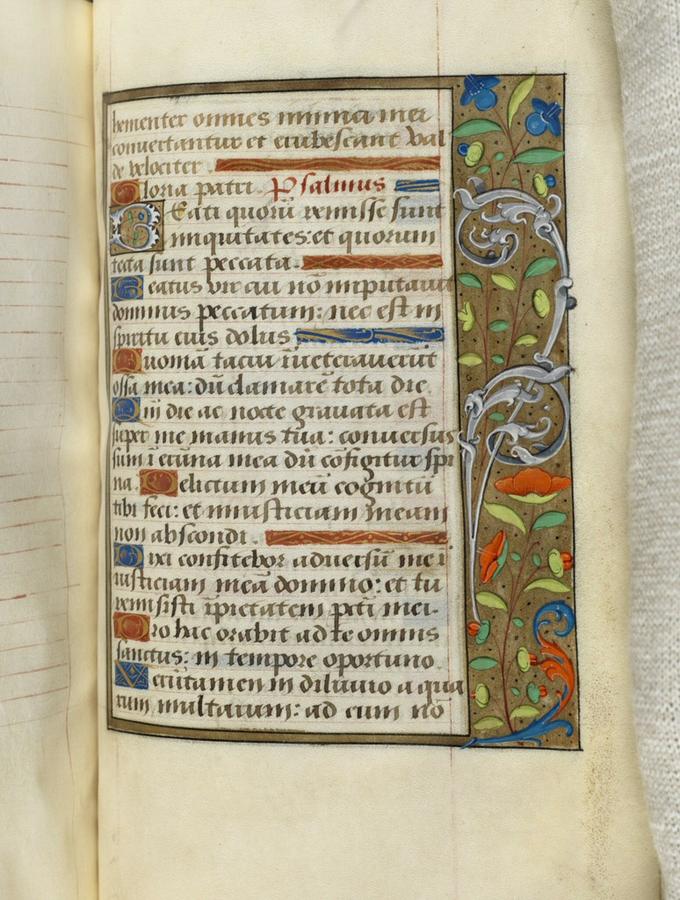 hementer omnes inimici mei
convertantur et erubescant val
de velociter.
Gloria patri. Psalmus
Beati quorū remisse sunt
iniquitates: et quorum
tecta sunt peccata.
Beatus vir cui nō imputavit
dominus peccatum: nec est in
spiritu eius dolus
Quoniā tacui īveteraverūt
ossa mea: dū clamarē tota die.
Qm̄ die ac nocte gravata est
super me manus tua: conversus
sum ī erūna mea dū cōfigitur spi
na. Delictum meū cognitū
tibi feci: et iniusticiam meam
non abscondi.
Dixi confitebor adversū me ī
iusticiam meā domino: et tu
remisisti īpietatem pcti mei.
Pro hac orabit ad te omnis
sanctus: in tempore oportuno.
Verūtamen in diluvio aqua
rum multarum: ad eum nō